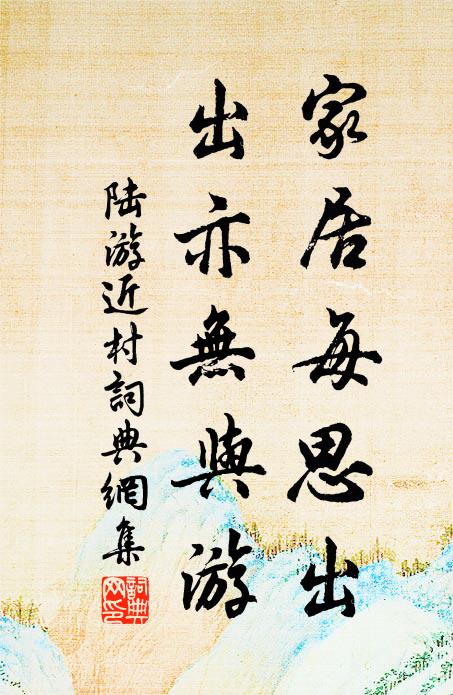 家居每思出
出亦無與游
陸游近村詞典網集
詞典網印